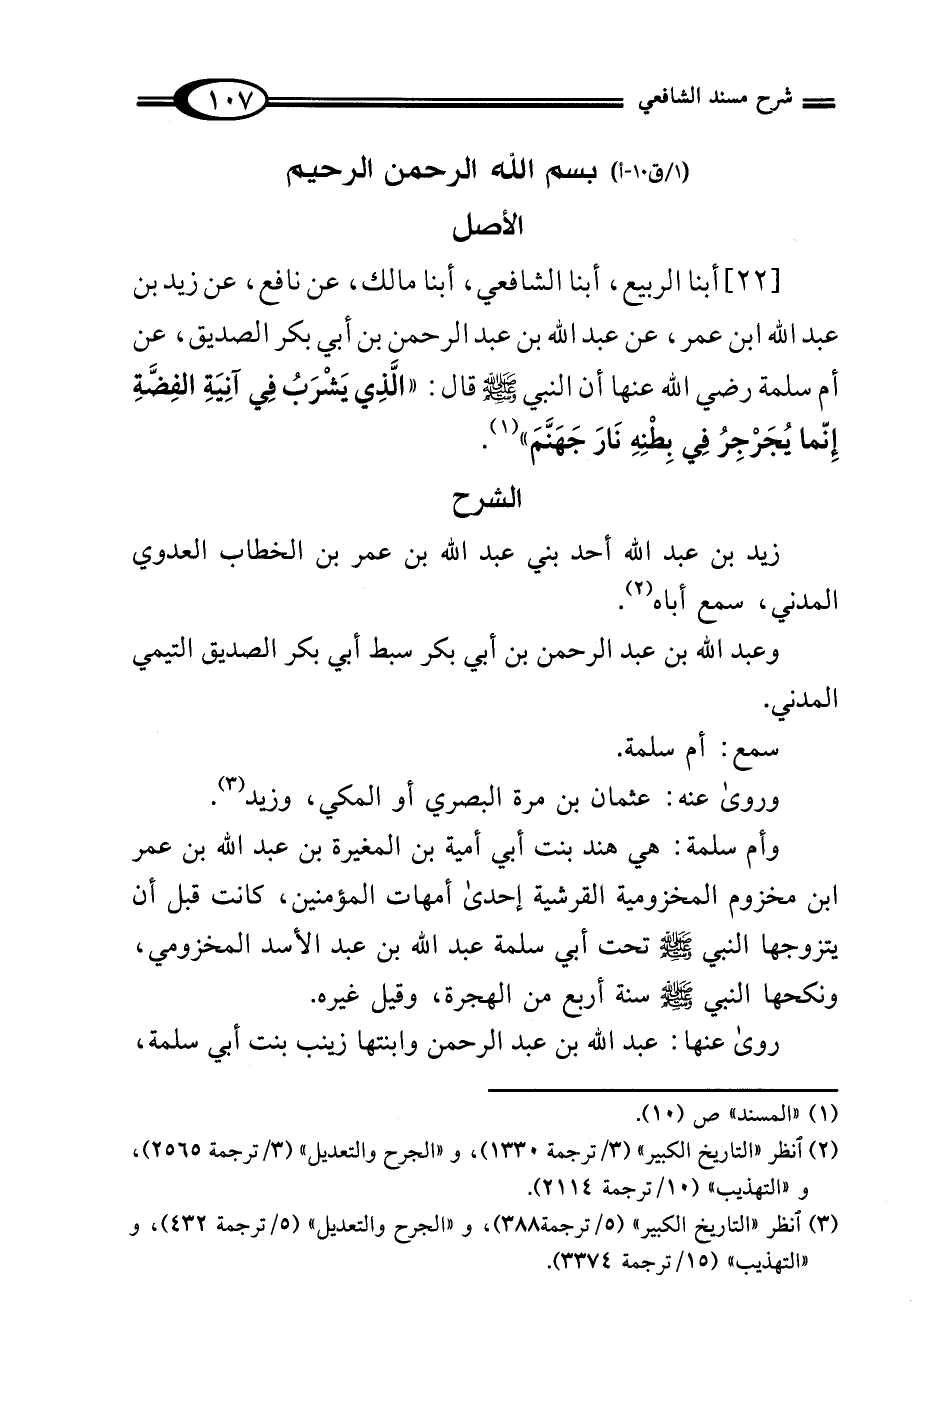 شرح مسند الشافعي ١٠٧
(١/ق١٠-أ) بسم الله الرحمن الرحيم
الأصل
[٢٢] أبنا الربيع، أبنا الشافعي، أبنا مالك، عن نافع، عن زيد بن
عبد الله ابن عمر، عن عبد الله بن عبد الرحمن بن أبي بكر الصديق، عن
أم سلمة رضي الله عنها أن النبي ﷺ قال: «الَّذِي يَشْرَبُ فِي آنِيَةِ الفِضَّةِ
إِنّما يُجَرْجِرُ فِي بِطْنِهِ نَارَ جَهَنَّمَ»(١).
الشرح
زيد بن عبد الله أحد بني عبد الله بن عمر بن الخطاب العدوي
المدني، سمع أباه(٢).
وعبد الله بن عبد الرحمن بن أبي بكر سبط أبي بكر الصديق التيمي
المدني.
سمع: أم سلمة.
وروىٰ عنه: عثمان بن مرة البصري أو المكي، وزيد(٣).
وأم سلمة: هي هند بنت أبي أمية بن المغيرة بن عبد الله بن عمر
ابن مخزوم المخزومية القرشية إحدىٰ أمهات المؤمنين، كانت قبل أن
يتزوجها النبي ﷺ تحت أبي سلمة عبد الله بن عبد الأسد المخزومي،
ونكحها النبي ﷺ سنة أربع من الهجرة، وقيل غيره.
روىٰ عنها: عبد الله بن عبد الرحمن وابنتها زينب بنت أبي سلمة،
(١) «المسند» ص (١٠).
(٢) ٱنظر «التاريخ الكبير» (٣/ ترجمة ١٣٣٠)، و «الجرح والتعديل» (٣/ ترجمة ٢٥٦٥)،
و «التهذيب» (١٠/ ترجمة ٢١١٤).
(٣) ٱنظر «التاريخ الكبير» (٥/ ترجمة٣٨٨)، و «الجرح والتعديل» (٥/ ترجمة ٤٣٢)، و
«التهذيب» (١٥/ ترجمة ٣٣٧٤).